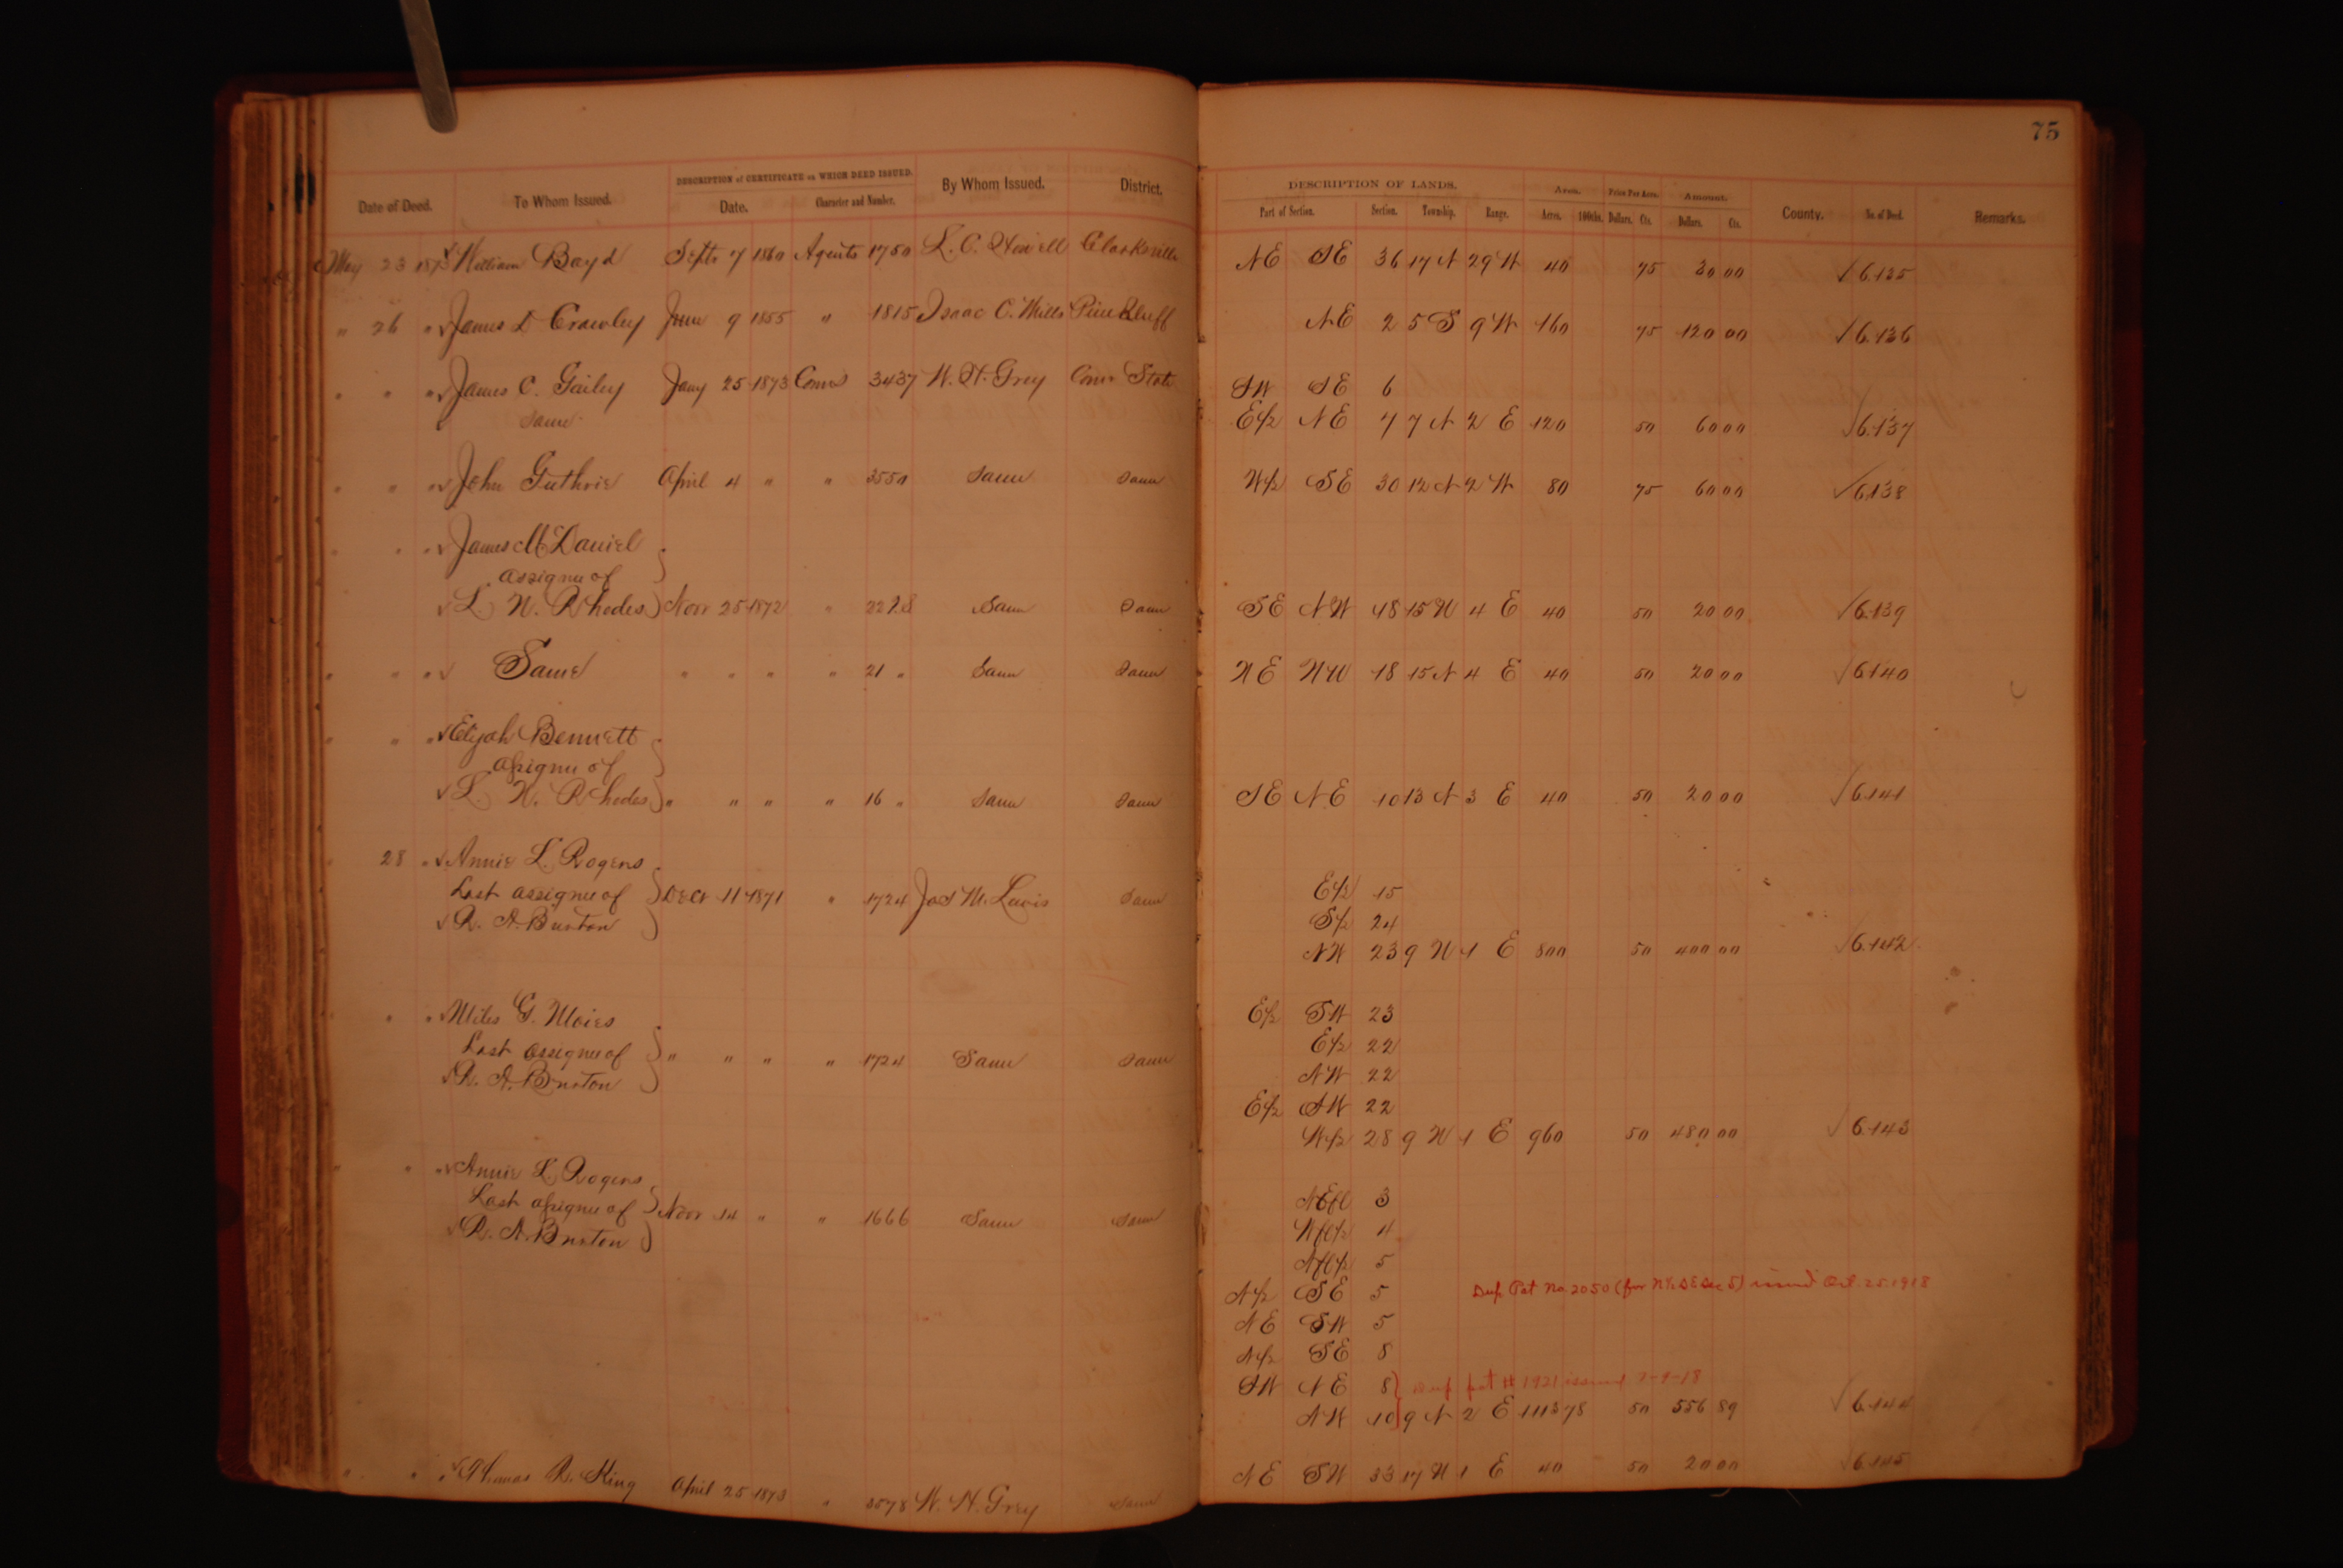 75
DESCRIPTION of CERTIFICATE on WHICH DEED ISSUED. DESCRIPTION OF LANDS. Area. Price Per Acre. Amount.
Date of Deed. To Whom Issued. Date. Character and Number. By Whom Issued. District. Part of Section. Section. Township. Range. Acres. 100ths. Dollars. Cts. Dollars. Cts. County. No. of Deed. Remarks.
May 23 1873 William Boyd Septr 7 1860 Agents 1750 Clarksville NE SE 36 17 N 29 W 40 75 30 00 6.135
" 26 " James D Crawley June 9 1855 " 1815 Isaac C. Mills Pine Bluff NE 2 5 S 9 W 160 75 120 00 6.136
" " " James C. Gailey Jany 25 1873 Comrs 3437 W. H. Grey Comr State SW SE 6
Same E½ NE 7 7 N 2 E 120 50 60 00 6.137
" " " John Guthrie April 4 " " 3550 Same Same W½ SE 30 12 N 2 W 80 75 60 00 6.138
" " " James McDaniel
assignee of
L. W. Rhodes Novr 25 1872 " 2228 Same Same SE NW 18 15 N 4 E 40 50 20 00 6.139
" " " Same " " " " 21 " Same Same NE NW 18 15 N 4 E 40 50 20 00 6.140
" " " Elijah Bennett
assignee of
L. W. Rhodes " " " " 16 " Same Same SE NE 10 13 N 3 E 40 50 20 00 6.141
28 " Annie L. Rogers
Last assignee of Decr 11 1871 " 1724 Jas M. Lewis Same E½ 15
R. A. Burton S½ 24
NW 23 9 N 1 E 800 50 400 00 6.142
" " Miles G. E½ SW 23
Last assignee of " " " " 1724 Same Same E½ 22
R. A. Burton NW 22
E½ SW 22
W½ 28 9 N 1 E 960 50 480 00 6.143
" " " Annie L. Rogers
Last assignee of Novr 14 " " 1666 Same Same NEfl 3
R. A. Burton Wfl½ 4
Nfl½ 5
N½ SE 5 Dup Pat No 2050 (for N½ SE Sec 5) issued Oct. 25 1918
NE SW 5
N½ SE 8
SW NE 8 Dup pat # 1921 issued
NW 10 9 N 2 E 1113 78 50 556 89 6.144
" " " Thomas R. King April 25 1873 " 3578 W. H. Grey Same NE SW 33 17 N 1 E 40 50 20 00 6.145